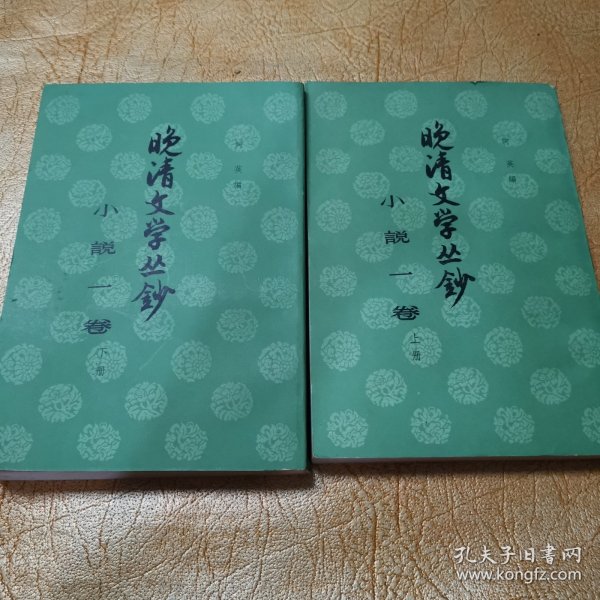 晚清文学丛鈔
小說一卷
下册
阿英編
晚清文学丛鈔
小說一卷
上册
阿英編
孔夫子旧书网
www.kongfz.com